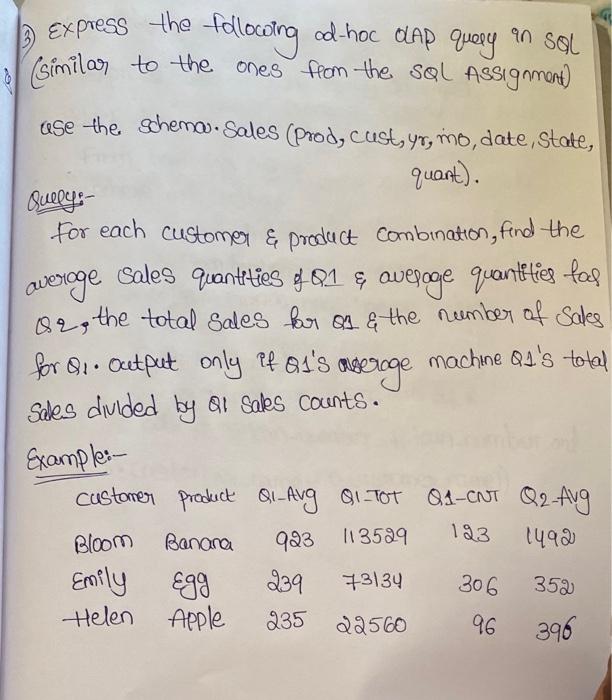 3) Express the following ad-hoc OLAP query in SQL
(similar to the ones from the SQL Assignment)
use the schema. Sales (prod, cust, yr, mo, date, state,
quant).
Query:-
For each customer & product combination, find the
average sales quantities of Q1 & average quantities for
Q2, the total sales for Q1 & the number of sales
for Q1. output only if Q1's average machine Q1's total
sales divided by Q1 sales counts.
Example:-
customer product Q1-Avg Q1-TOT Q1-CNT Q2-Avg
Bloom Banana 923 113529 123 1492
Emily Egg 239 73134 306 352
Helen Apple 235 22560 96 396